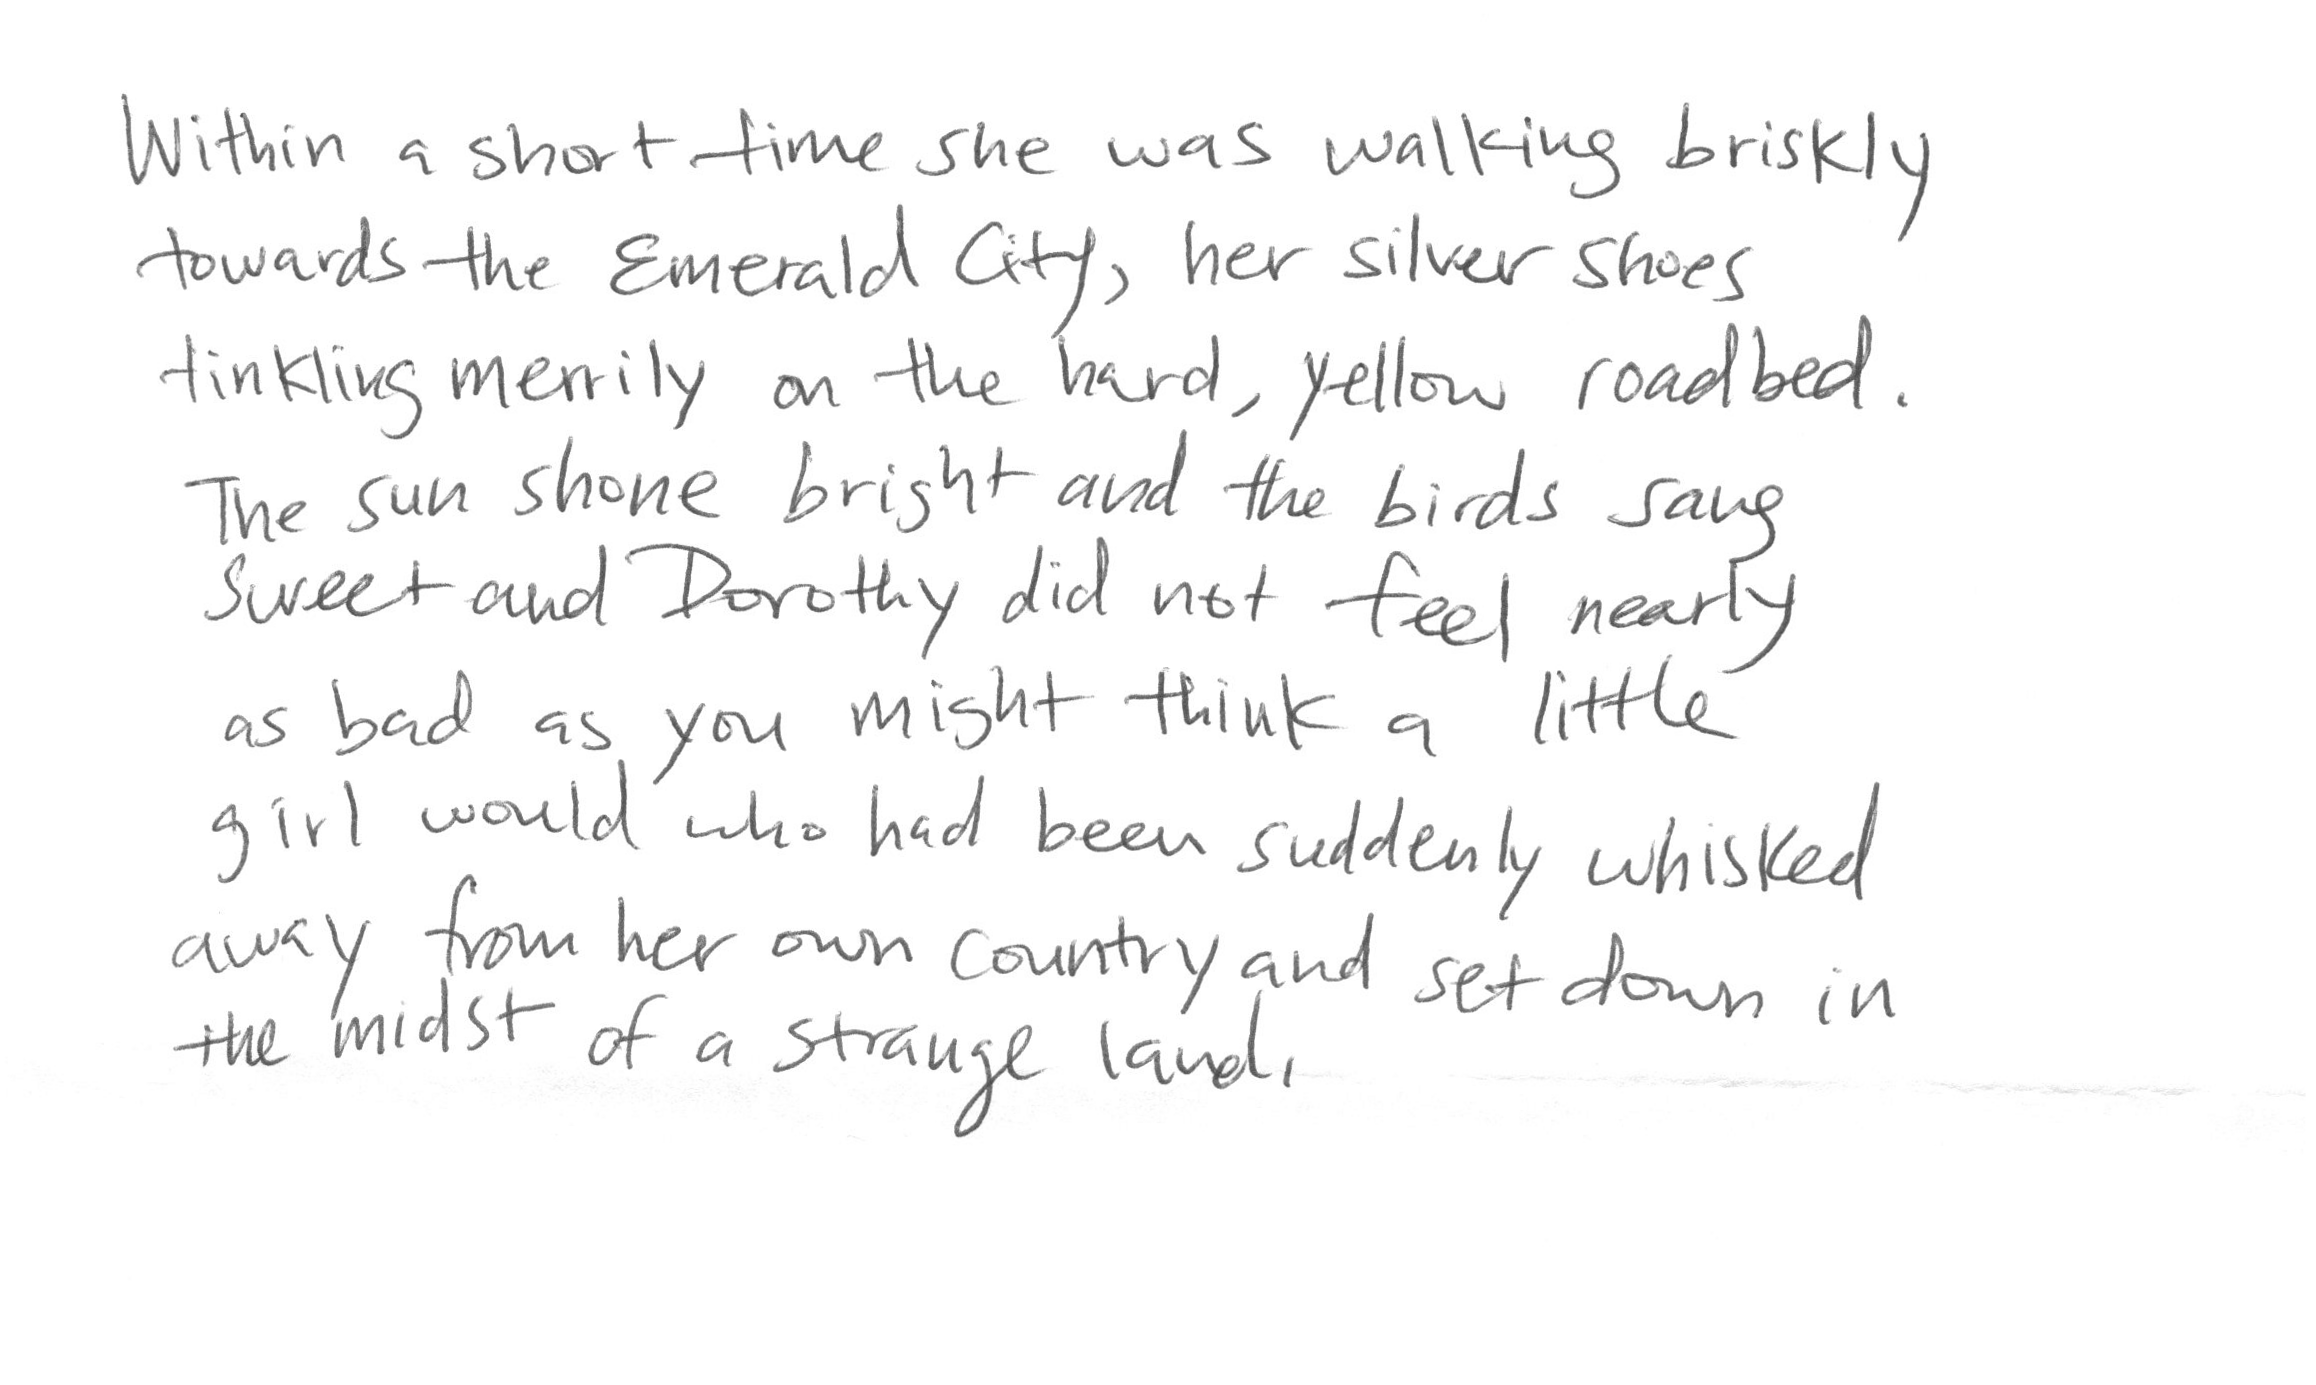 Within a short time she was walking briskly
towards the Emerald City, her silver shoes
tinkling merrily on the hard, yellow roadbed.
The sun shone bright and the birds sang
sweet and Dorothy did not feel nearly
as bad as you might think a little
girl would who had been suddenly whisked
away from her own country and set down in
the midst of a strange land.